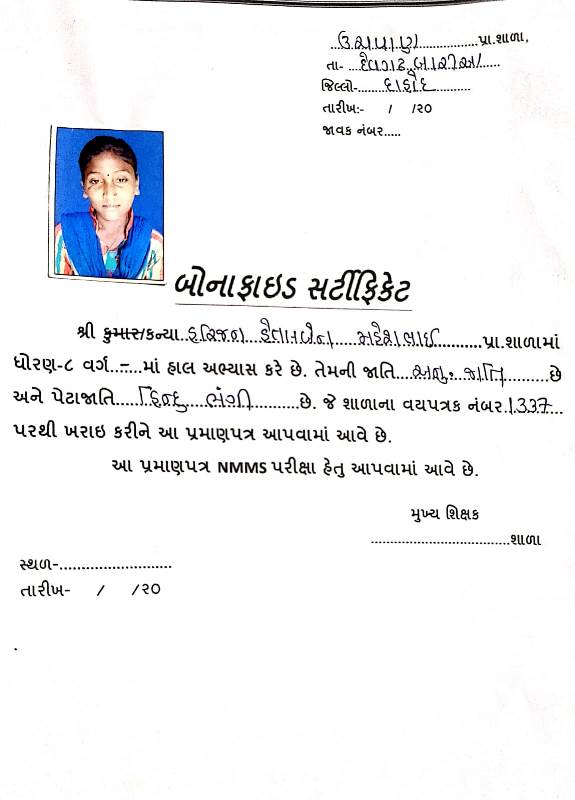 ...ઉચવાણ...............પ્રા.શાળા,
તા- ...દેવગઢ.બારીઆ.....
જિલ્લો-.......દાહોદ..........
તારીખ:- / /૨૦
જાવક નંબર.....
બોનાફાઇડ સર્ટીફિકેટ
શ્રી કુમાર/કન્યા..હરિજન ... મહેશભાઈ...........પ્રા.શાળામાં
ધોરણ-૮ વર્ગ..-...માં હાલ અભ્યાસ કરે છે. તેમની જાતિ....અનુ. જાતિ..........છે
અને પેટાજાતિ.....હિન્દુ ભંગી..........છે. જે શાળાના વયપત્રક નંબર.1337...
પરથી ખરાઇ કરીને આ પ્રમાણપત્ર આપવામાં આવે છે.
આ પ્રમાણપત્ર NMMS પરીક્ષા હેતુ આપવામાં આવે છે.
મુખ્ય શિક્ષક
...................................શાળા
સ્થળ-..........................
તારીખ- / /૨૦